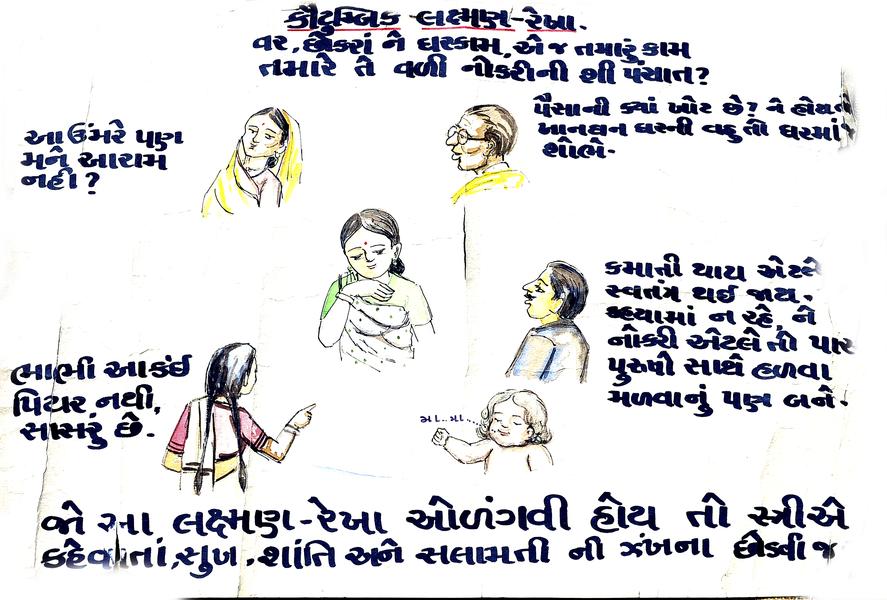 કૌટુમ્બિક લક્ષ્મણ-રેખા.
વર, છોકરાં ને ઘરકામ, એ જ તમારું કામ
તમારે તે વળી નોકરીની શી પંચાત?
આ ઉંમરે પણ
મને આરામ
નહીં?
પૈસાની ક્યાં ખોટ છે? ને હોય તો
ખાનદાન ઘરની વહુ તો ઘરમાં
શોભે.
કમાતી થાય એટલે
સ્વતંત્ર થઈ જાય.
કહ્યામાં ન રહે, ને
નોકરી એટલે તો
પુરુષો સાથે હળવા
મળવાનું પણ બને.
ભાભી આ કંઈ
પિયર નથી,
સાસરું છે.
મા..મા...
જો આ લક્ષ્મણ-રેખા ઓળંગવી હોય તો સ્ત્રીએ
કહેવાતાં, સુખ, શાંતિ અને સલામતી ની ઝંખના છોડવી જ